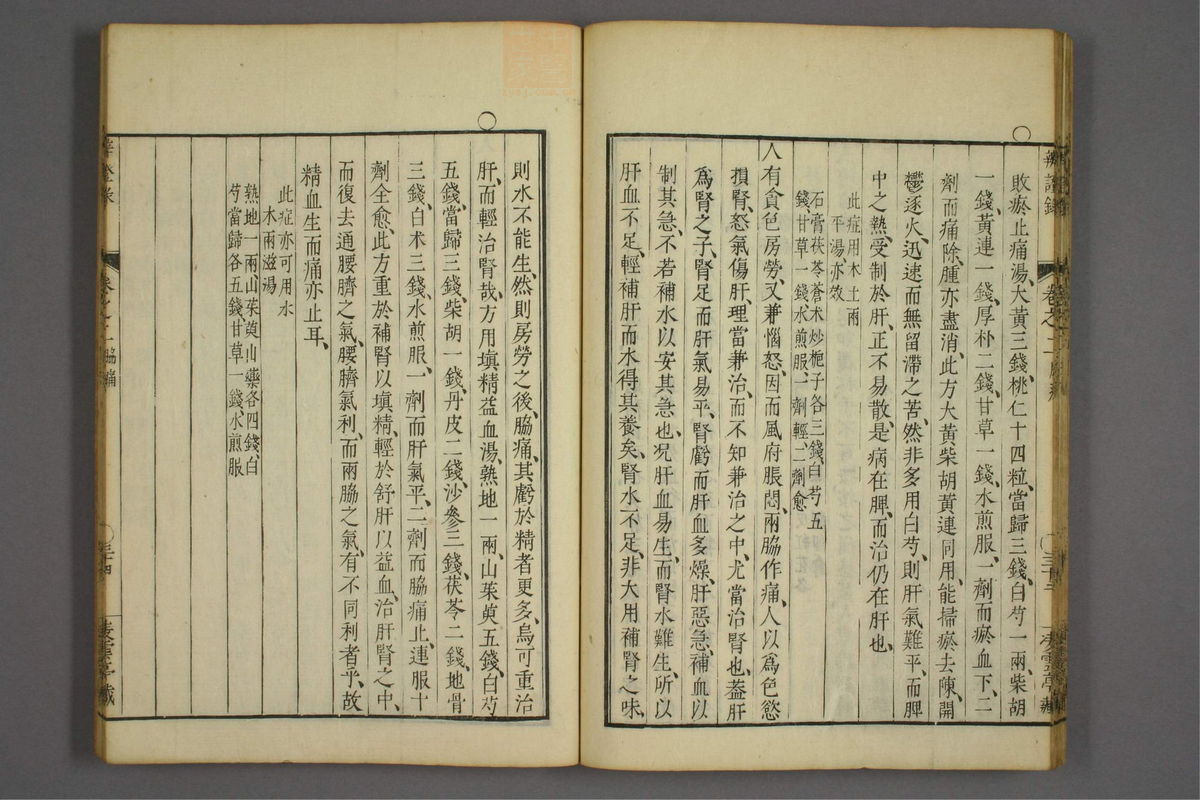 敗瘀止痛湯、大黃三錢、桃仁十四粒、當歸三錢、白芍一兩、柴胡
一錢、黃連一錢、厚朴二錢、甘草一錢、水煎服、一劑而瘀血下、二
劑而痛除、腫亦盡消、此方大黃柴胡黃連同用、能掃瘀去陳、開
鬱逐火、迅速而無留滯之苦、然非多用白芍、則肝氣難平、而脾
中之熱、受制於肝、正不易散、是病在脾、而治仍在肝也、
此症用木土兩
平湯亦效
石膏茯苓蒼术炒梔子各三錢、白芍五
錢、甘草一錢、水煎服、一劑輕、二劑愈
人有貪色房勞、又兼惱怒、因而風府脹悶、兩脇作痛、人以爲色慾
損腎、怒氣傷肝、理當兼治、而不知兼治之中、尤當治腎也、蓋肝
爲腎之子、腎足而肝氣易平、腎虧而肝血多燥、肝惡急、補血以
制其急、不若補水以安其急也、况肝血易生、而腎水難生、所以
肝血不足、輕補肝而水得其養矣、腎水不足、非大用補腎之味、
則水不能生、然則房勞之後、脇痛、其虧於精者更多、烏可重治
肝、而輕治腎哉、方用塡精益血湯、熟地一兩、山茱萸五錢、白芍
五錢、當歸三錢、柴胡一錢、丹皮二錢、沙參三錢、茯苓二錢、地骨
三錢、白术三錢、水煎服、一劑而肝氣平、二劑而脇痛止、連服十
劑全愈、此方重於補腎以塡精、輕於舒肝以益血、治肝腎之中、
而復去通腰臍之氣、腰臍氣利、而兩脇之氣、有不同利者乎、故
精血生而痛亦止耳、
此症亦可用水
木兩滋湯
熟地一兩、山茱萸山藥各四錢、白
芍當歸各五錢、甘草一錢、水煎服